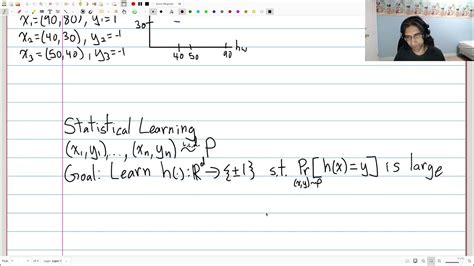 x₁=(90,80), y₁=1
x₂=(40,30), y₂=-1
x₃=(50,40), y₃=-1
30
40 50 90 hw
Statistical Learning
(x₁,y₁),...,(xₙ,yₙ) iid~ P
Goal: Learn h(·):ℝᵈ→{±1} s.t. Pr[h(x)=y] is large
(x,y)~P